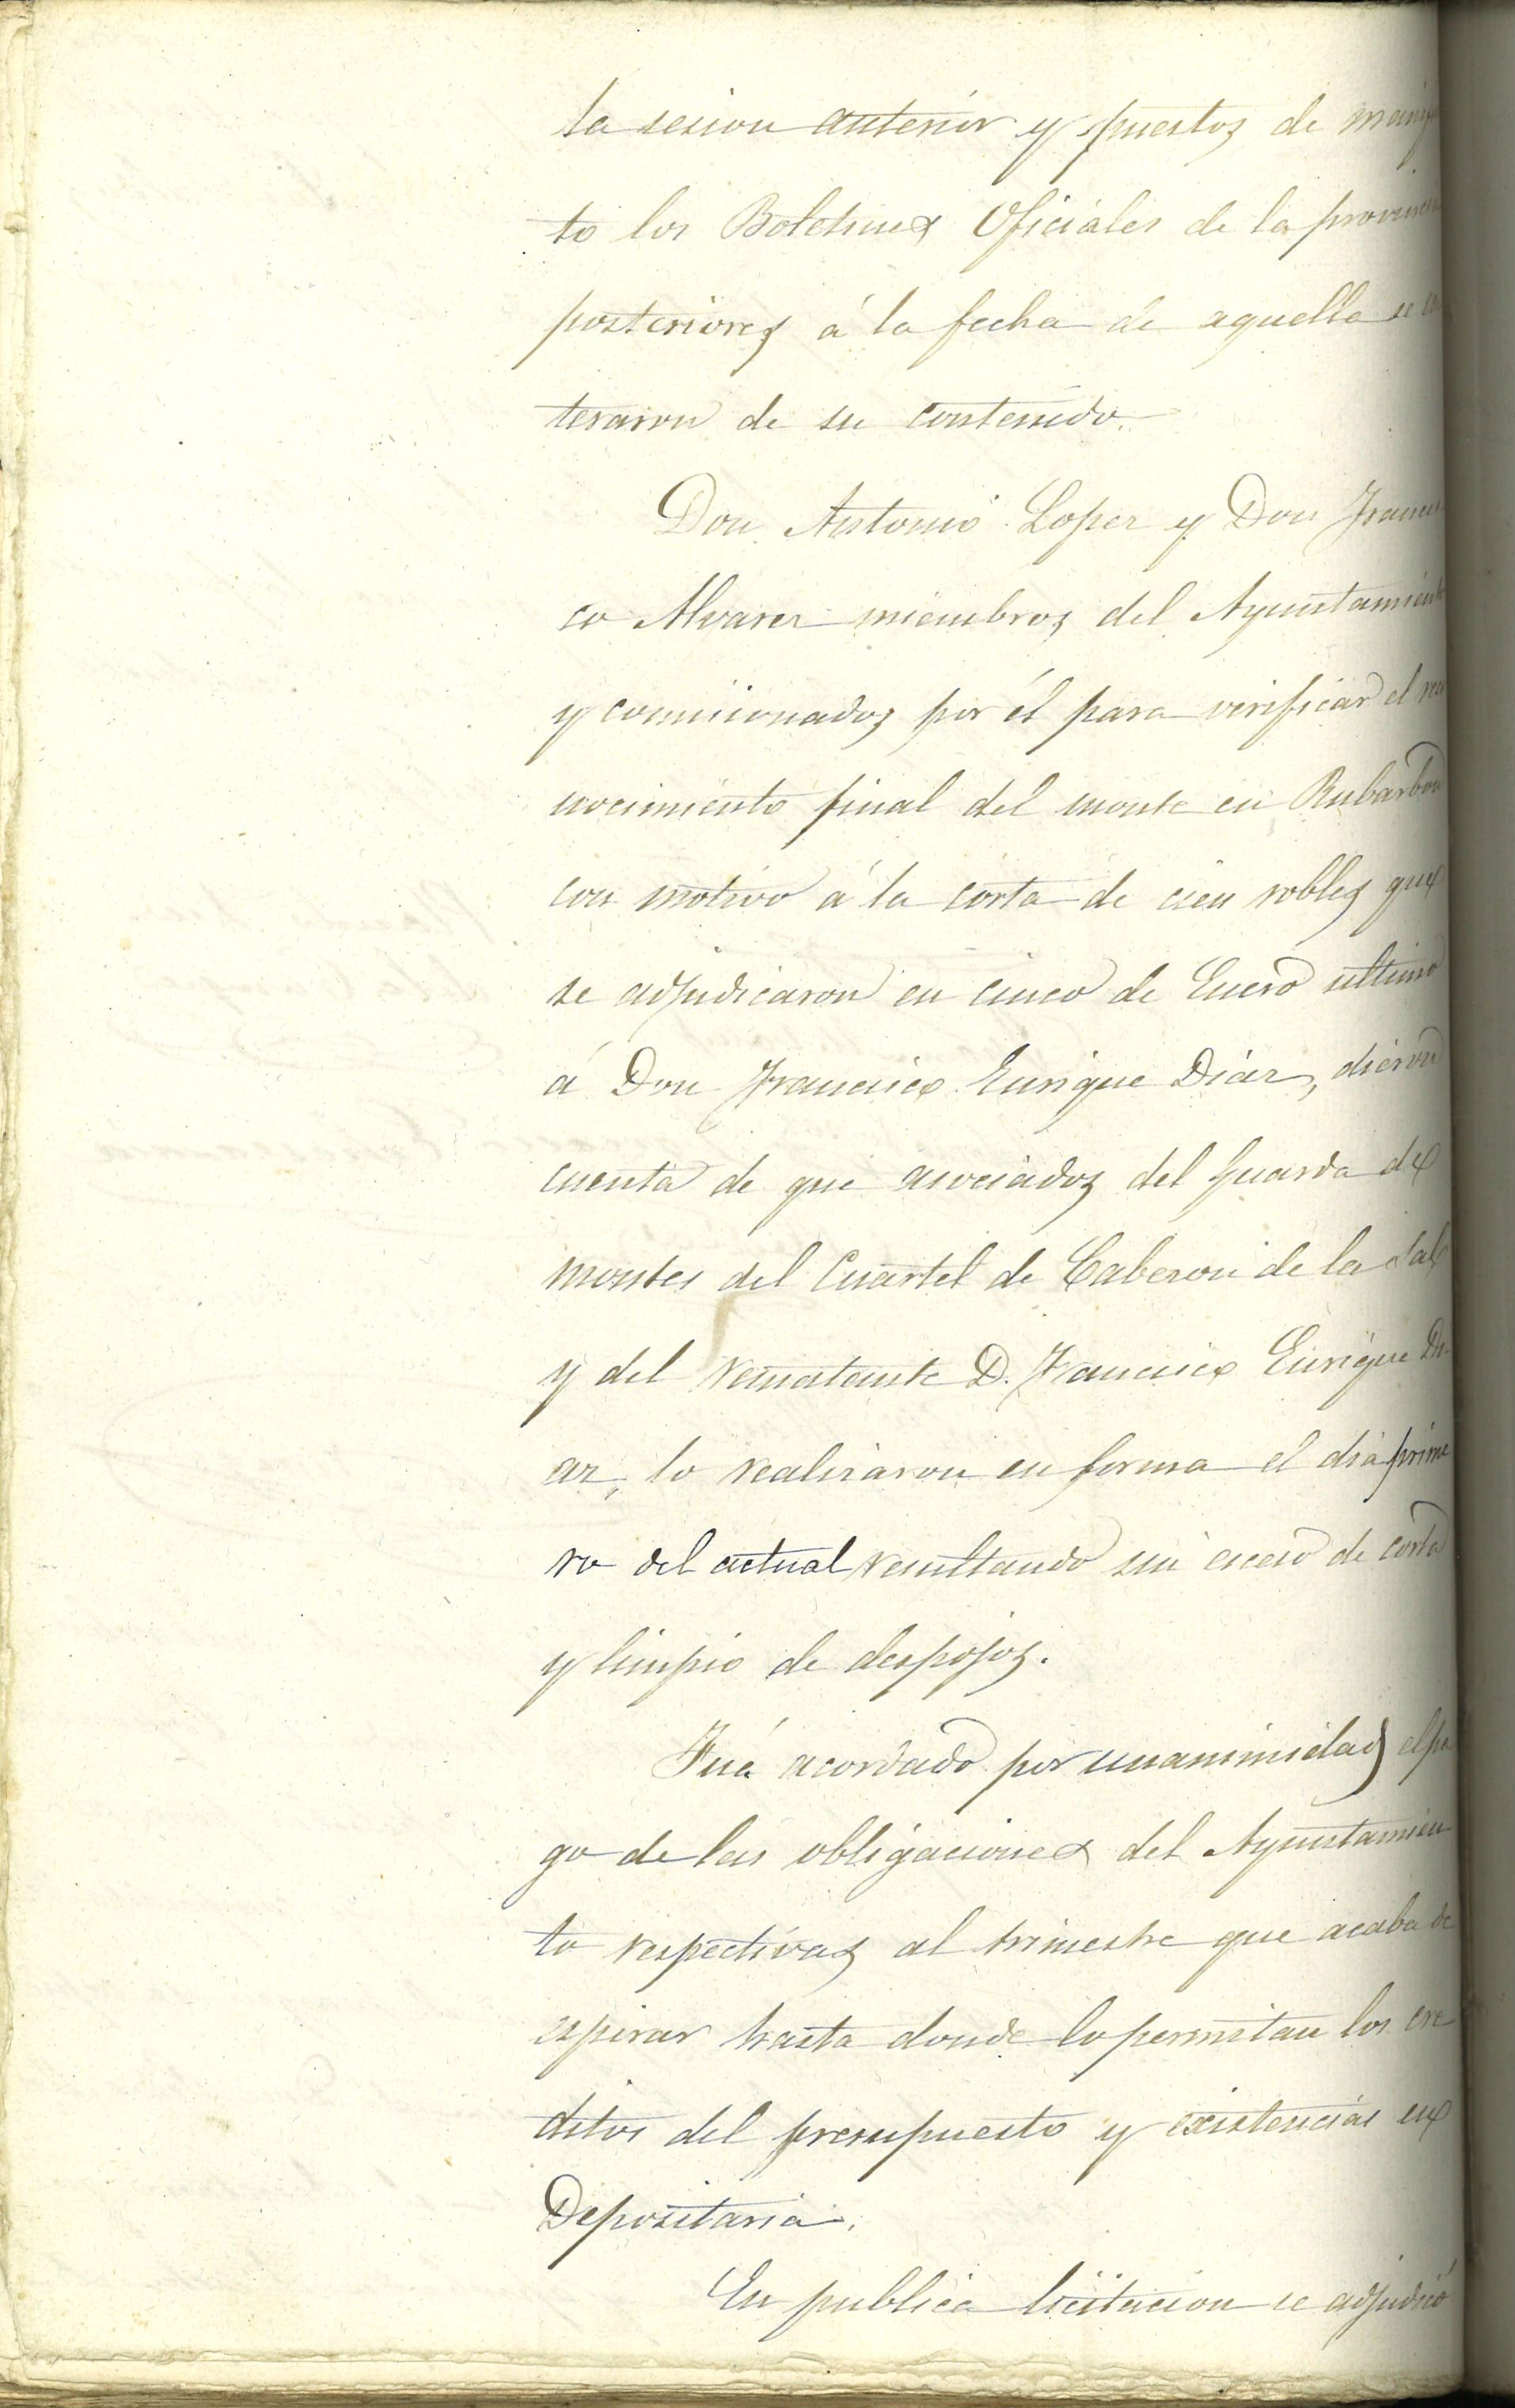 la sesion anterior y puestos de manif
to los Boletines Oficiales de la provincia
posteriores á la fecha de aquella se en
teraron de su contenido.
Don Antonio Lopez y Don Francis
co Alvarez miembros del Ayuntamiento
y comisionados por él para verificar el reco
nocimiento final del monte en Rubarbon
con motivo á la corta de cien robles que
se adjudicaron en cinco de Enero ultimo
á Don Francisco Enrique Diaz, dieron
cuenta de que asociados del Guarda de
montes del Cuartel de Cabezon de la Sal
y del rematante D. Francisco Enrique Di-
az, lo realizaron en forma el dia prime
ro del actual resultando sin exceso de corta
y limpio de despojos.
Fué acordado por unanimidad el pa
go de las obligaciones del Ayuntamien
to respectivas al trimestre que acaba de
espirar hasta donde lo permitan los cre
ditos del presupuesto y existencias en
Depositaria.
En publica licitacion se adjudicó